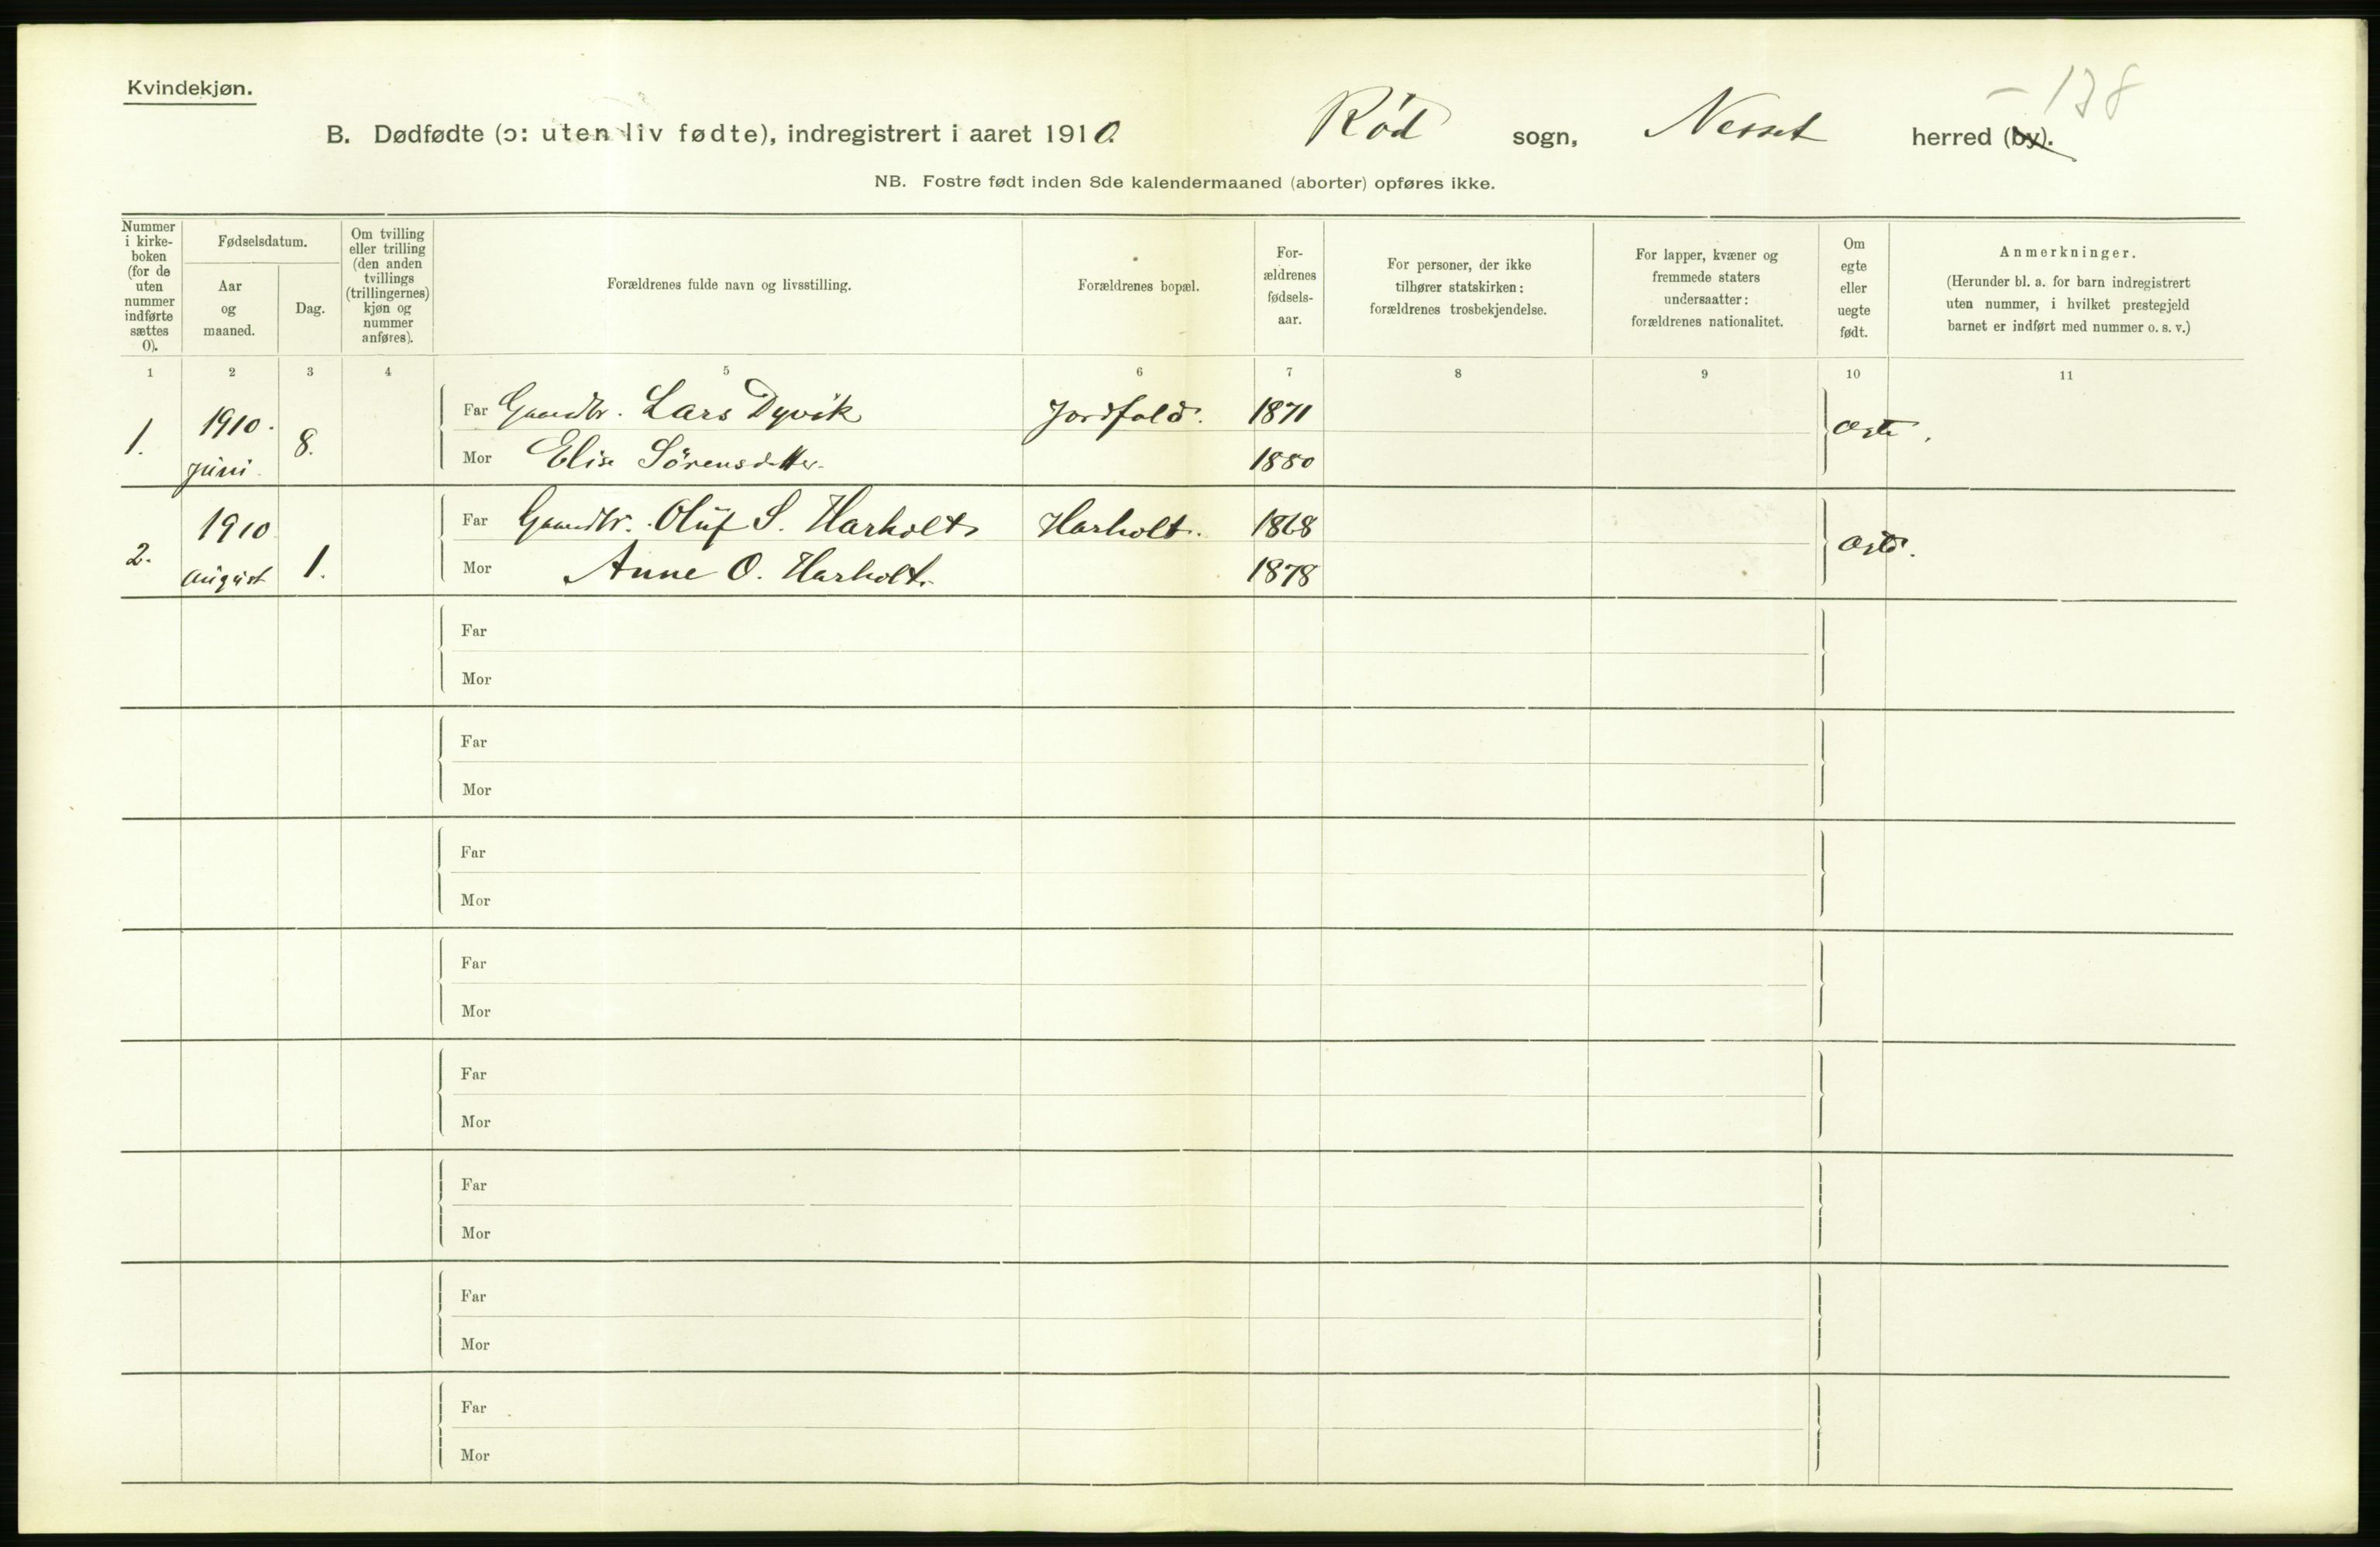 Kvindekjøn.
- 138
B. Dødfødte (ɔ: uten liv fødte), indregistrert i aaret 1910. Rød sogn, Nesset herred (by).
NB. Fostre født inden 8de kalendermaaned (aborter) opføres ikke.
Nummer i kirke-boken (for de uten nummer indførte sættes 0).
Fødselsdatum.
Aar og maaned.
Dag.
Om tvilling eller trilling (den anden tvillings (trillingernes) kjøn og nummer anføres).
Forældrenes fulde navn og livsstilling.
Forældrenes bopæl.
For-ældrenes fødsels-aar.
For personer, der ikke tilhører statskirken: forældrenes trosbekjendelse.
For lapper, kvæner og fremmede staters undersaatter: forældrenes nationalitet.
Om egte eller uegte født.
Anmerkninger.
(Herunder bl. a. for barn indregistrert uten nummer, i hvilket prestegjeld barnet er indført med nummer o. s. v.)
1 2 3 4 5 6 7 8 9 10 11
1. 1910. Juni 8. Far Gaardbr. Lars Dyvik Jordfald. 1871 ægte.
Mor Elise Sörensdatter. 1880
2. 1910 August 1. Far Gaardbr. Oluf S. Harholt Harholt. 1868 ægte.
Mor Anne O. Harholt. 1878
Far
Mor
Far
Mor
Far
Mor
Far
Mor
Far
Mor
Far
Mor
Far
Mor
Far
Mor